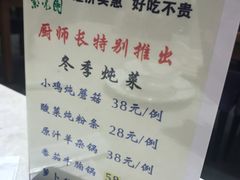 经济实惠 好吃不贵
厨师长特别推出
冬季炖菜
小鸡炖蘑菇 38元/例
酸菜炖粉条 28元/例
原汁羊杂锅 38元/例
番茄牛腩锅 58